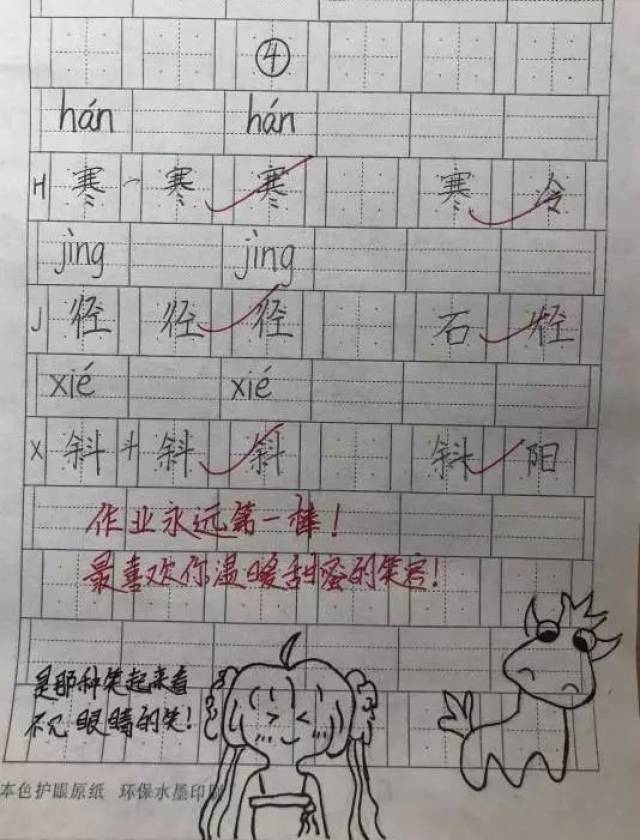 ④
hán hán
H 寒 宀 寒 寒 寒 冷
jìng jìng
J 径 径 径 石 径
xié xié
X 斜 斗 斜 斜 斜 阳
作业永远第一棒！
最喜欢你温暖甜蜜的笑容！
是那种笑起来看
不见眼睛的笑！
本色护眼原纸 环保水墨印刷